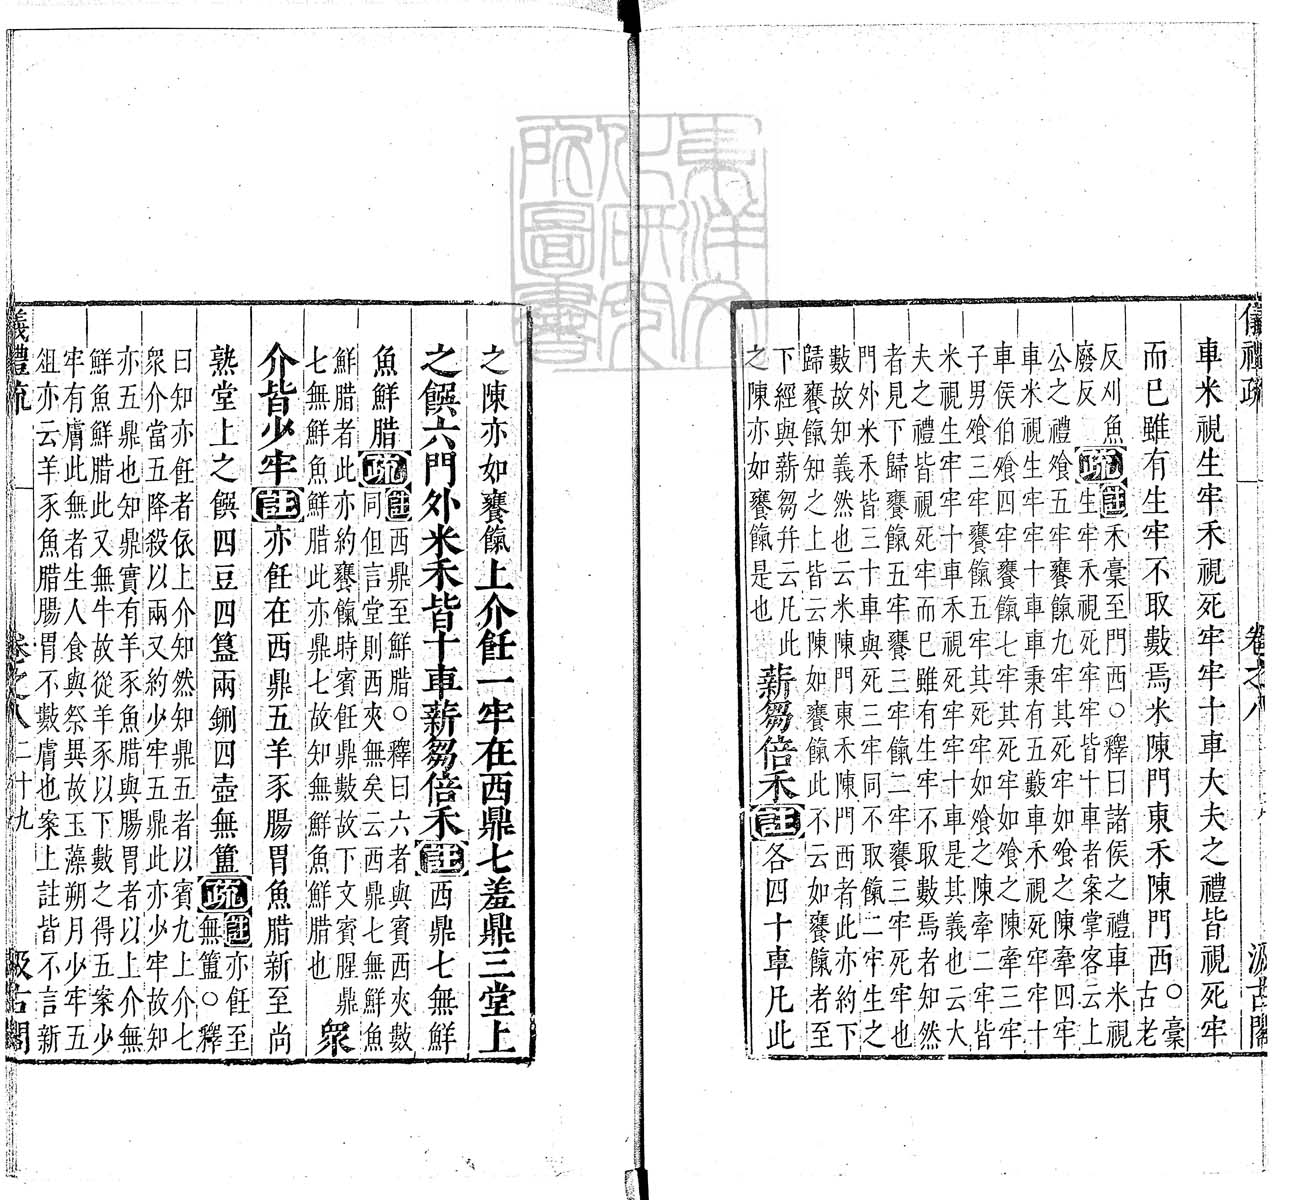 儀禮疏
卷之八
汲古閣
車米視生牢禾視死牢牢十車大夫之禮皆視死牢
而已雖有生牢不取數焉米陳門東禾陳門西○藁古老
反刈魚廢反
疏
註禾藁至門西○釋曰諸侯之禮車米視
生牢禾視死牢皆十車者案掌客云上
公之禮飧五牢饔餼九牢其死牢如飧之陳牽四牢
車米視生牢牢十車車秉有五籔車禾視死牢牢十
車侯伯飧四牢饔餼七牢其死牢如飧之陳牽三牢
子男飧三牢饔餼五牢其死牢如飧之陳牽二牢皆
米視生牢牢十車禾視死牢牢十車是其義也云大
夫之禮皆視死牢而已雖有生牢不取數焉者知然
者見下歸饔餼五牢饔三牢餼二牢饔三牢死牢也
門外米禾皆三十車與死三牢同不取餼二牢生之
數故知義然也云米陳門東禾陳門西者此亦約下
歸饔餼知之上皆云陳如饔餼此不云如饔餼者至
下經與薪芻幷云凡此
之陳亦如饔餼是也
薪芻倍禾
註
各四十車凡此
之陳亦如饔餼上介飪一牢在西鼎七羞鼎三堂上
之饌六門外米禾皆十車薪芻倍禾註西鼎七無鮮
魚鮮腊
疏
註西鼎至鮮腊○釋曰六者與賓西夾數
同但言堂則西夾無矣云西鼎七無鮮魚
鮮腊者此亦約饔餼時賓飪鼎數故下文賓腥鼎
七無鮮魚鮮腊此亦鼎七故知無鮮魚鮮腊也
眾
介皆少牢註亦飪在西鼎五羊豕腸胃魚腊新至尚
熟堂上之饌四豆四簋兩鉶四壺無簠
疏
註亦飪至
無簠○釋
曰知亦飪者依上介知然知鼎五者以賓九上介七
眾介當五降殺以兩又約少牢五鼎此亦少牢故知
亦五鼎也知鼎實有羊豕魚腊與腸胃者以上介無
鮮魚鮮腊此又無牛故從羊豕以下數之得五案少
牢有膚此無者生人食與祭異故玉藻朔月少牢五
俎亦云羊豕魚腊腸胃不數膚也案上註皆不言新
儀禮疏
卷之八
二十九
汲古閣